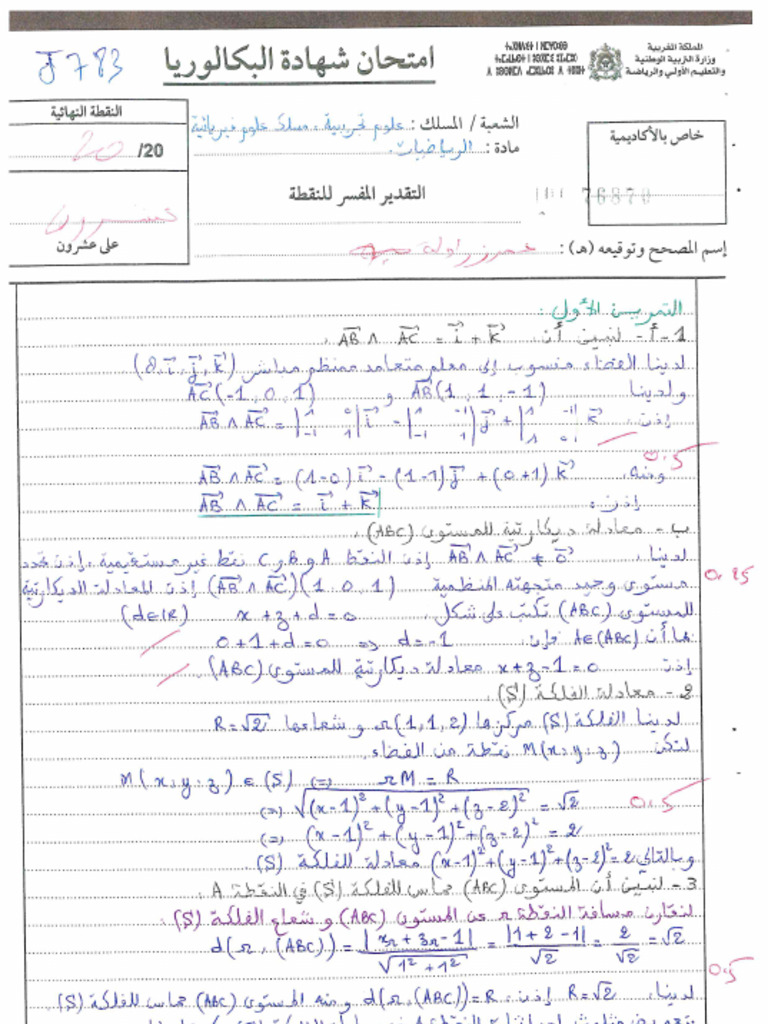 J783
امتحان شهادة البكالوريا
المملكة المغربية
وزارة التربية الوطنية
والتعليم الأولي والرياضة
النقطة النهائية
20 /20
عشرون
على عشرون
الشعبة / المسلك : علوم تجريبية . مسلك علوم فيزيائية
مادة : الرياضيات
التقدير المفسر للنقطة
خاص بالأكاديمية
76870
إسم المصحح وتوقيعه (ه) :
التمرين الأول :
1 - أ - لنبين أن AB ∧ AC = i + k .
لدينا الفضاء منسوب إلى معلم متعامد ممنظم مباشر (O, i, j, k)
ولدينا AB(1, 1, -1) و AC(-1, 0, 1)
إذن AB ∧ AC = |1 0 -1 1| i - |1 -1 -1 1| j + |1 -1 1 0| k
0.5
ومنه AB ∧ AC = (1-0) i - (1-1) j + (0+1) k
إذن : AB ∧ AC = i + k
ب - معادلة ديكارتية للمستوى (ABC) .
لدينا AB ∧ AC ≠ 0 إذن النقط A و B و C نقط غير مستقيمية . إذن تحدد
0.25
مستوى وحيد متجهته المنظمية (AB ∧ AC)(1, 0, 1) إذن المعادلة الديكارتية
للمستوى (ABC) تكتب على شكل x + z + d = 0 (d∈IR)
بما أن A∈(ABC) فإن 0+1+d=0 ⇒ d=-1
إذن x+z-1=0 معادلة ديكارتية للمستوى (ABC) .
2 - معادلة الفلكة (S) .
لدينا الفلكة (S) مركزها Ω(1,1,2) و شعاعها R=√2
لتكن M(x,y,z) نقطة من الفضاء.
M(x,y,z) ∈ (S) ⇔ ΩM = R
⇔ √((x-1)²+(y-1)²+(z-2)²) = √2
0.5
⇔ (x-1)²+(y-1)²+(z-2)² = 2
وبالتالي (x-1)²+(y-1)²+(z-2)²=2 معادلة للفلكة (S) .
3 - لنبين أن المستوى (ABC) مماس للفلكة (S) في النقطة A
لنقارن مسافة النقطة Ω عن المستوى (ABC) و شعاع الفلكة (S) :
d(Ω, (ABC)) = |xΩ + zΩ - 1| / √(1²+1²) = |1+2-1| / √2 = 2/√2 = √2
0.5
لدينا R=√2 إذن d(Ω,(ABC))=R ومنه المستوى (ABC) مماس للفلكة (S)